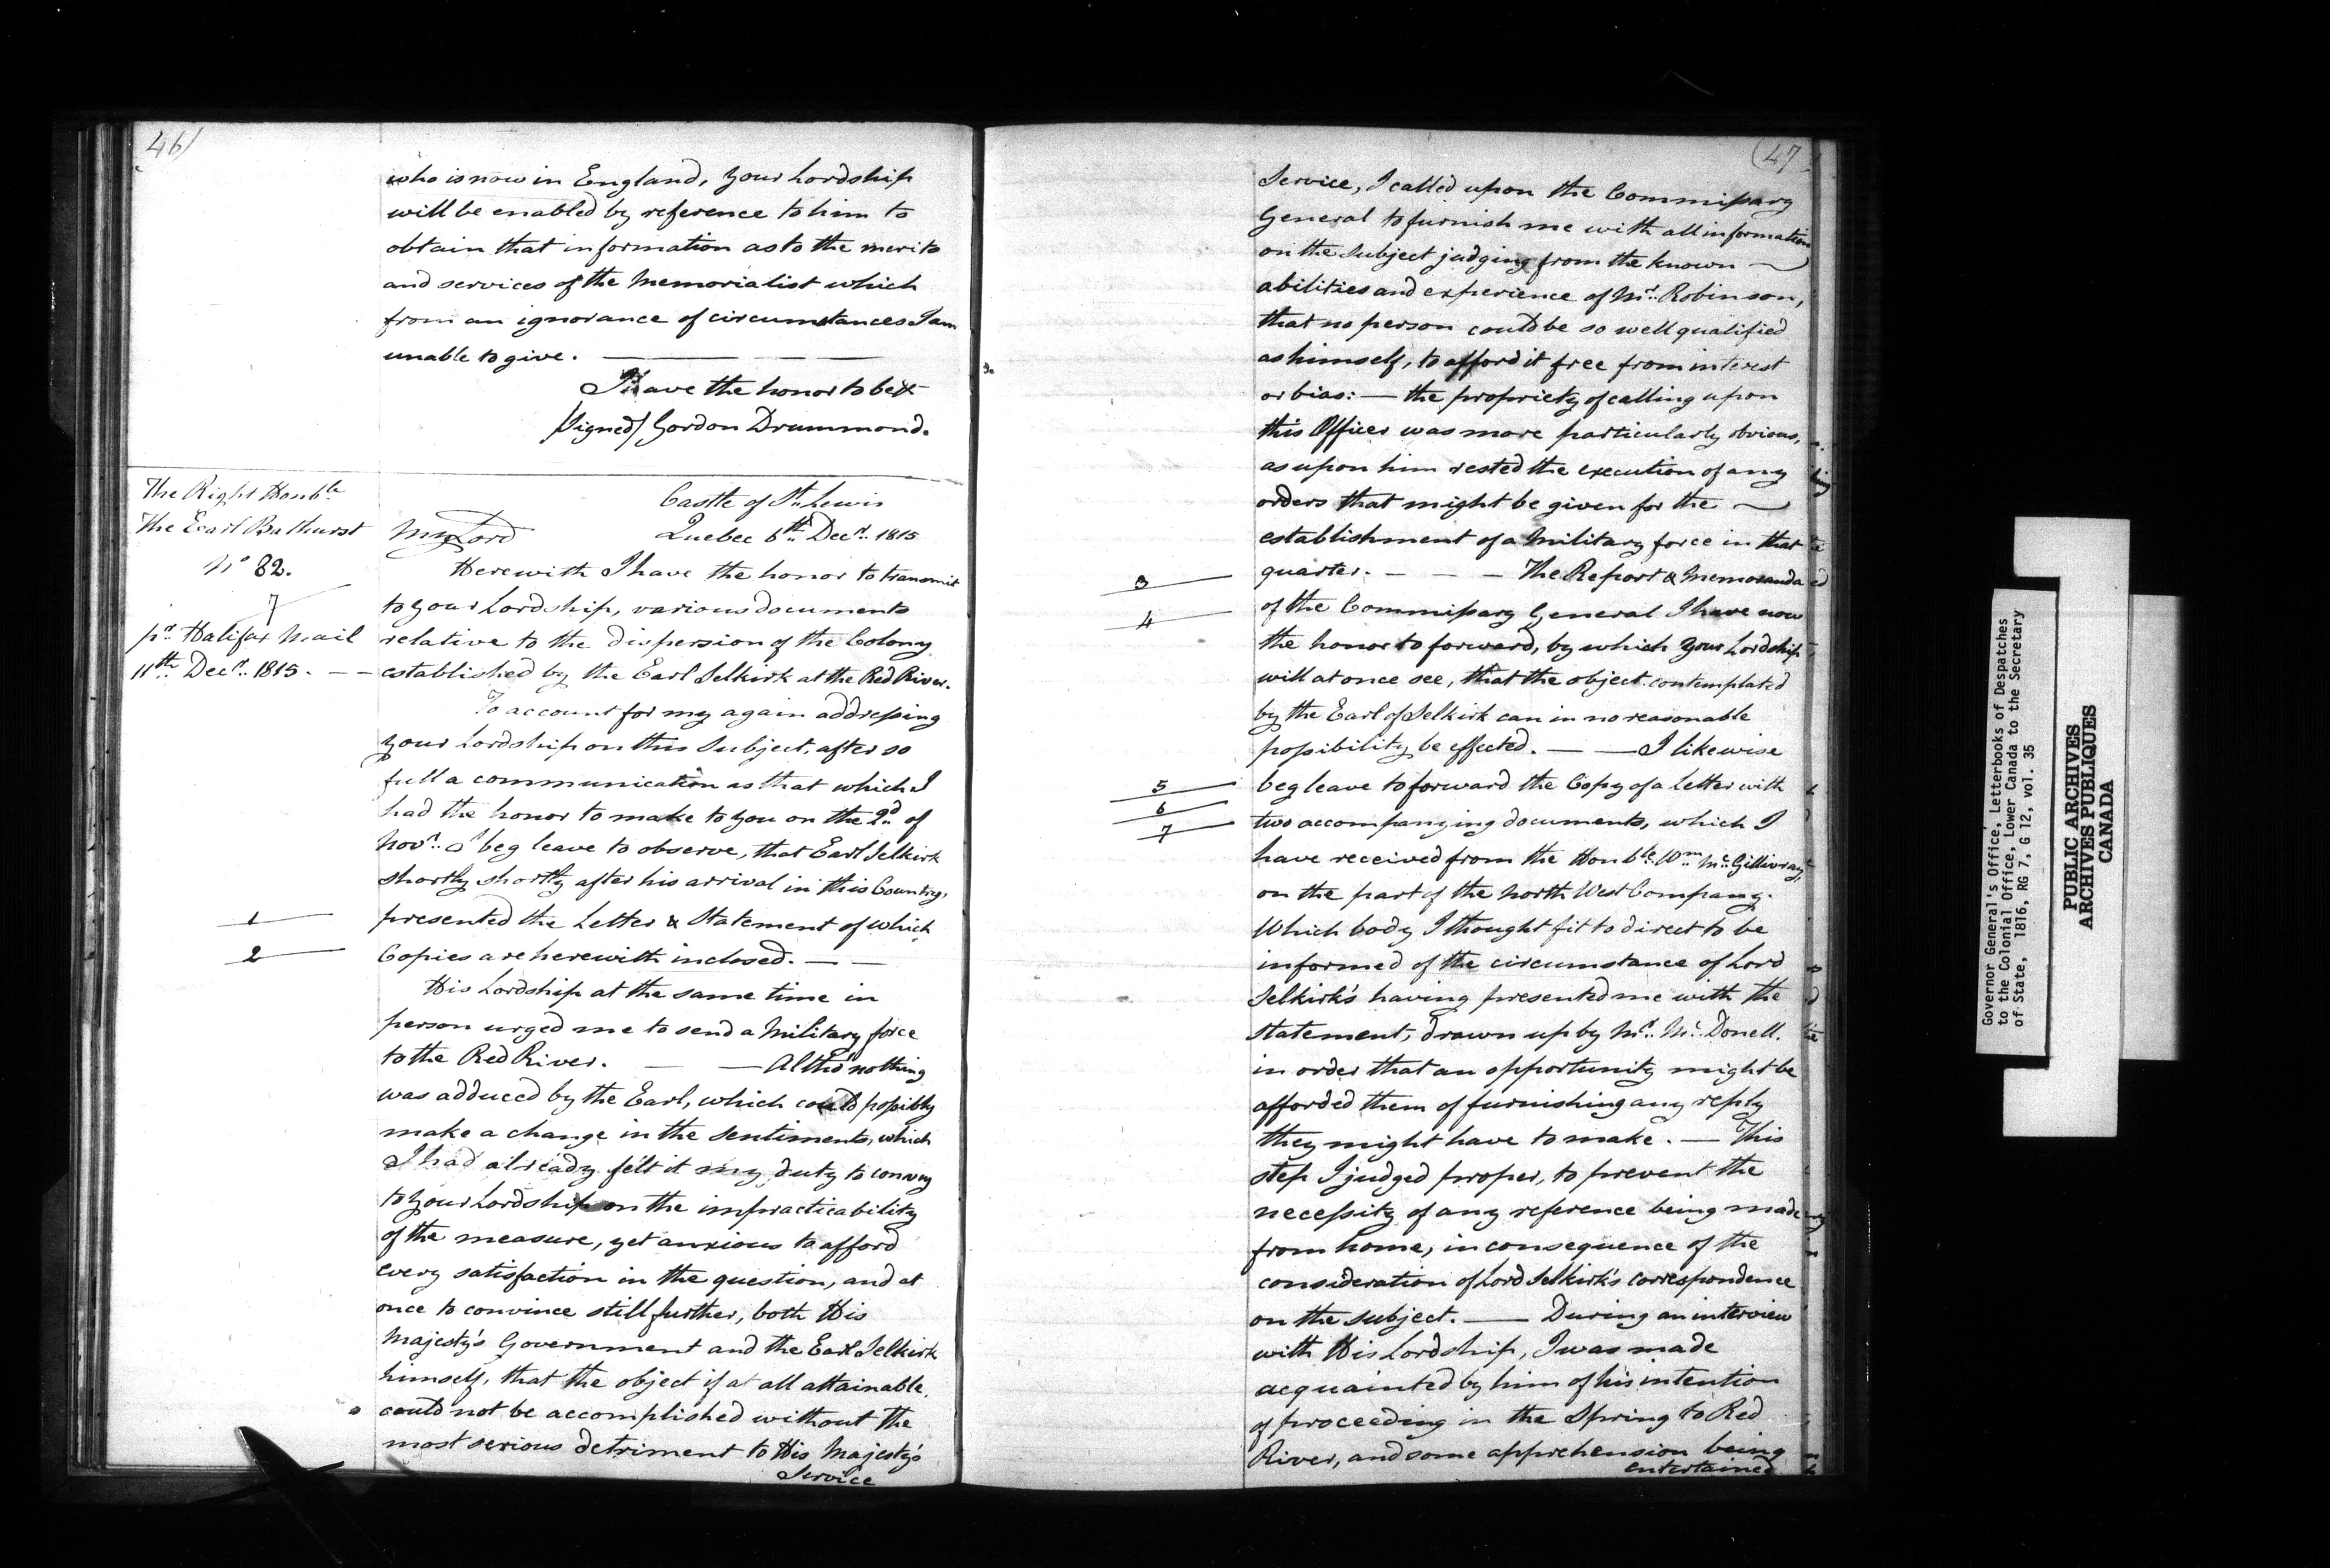 46)
who is now in England, your Lordship
will be enabled by reference to him to
obtain that information as to the merits
and services of the Memorialist which
from an ignorance of circumstances I am
unable to give. — — —
I have the honor to be &c
/Signed/ Gordon Drummond.
The Right Honble
The Earl Bathurst
No 82.
7
pr Halifax Mail
11th Decr. 1815. — —
Castle of St. Lewis
My Lord Quebec 6th Decr. 1815
Herewith I have the honor to transmit
to your Lordship, various documents
relative to the dispersion of the Colony
established by the Earl Selkirk at the Red River.
To account for my again addressing
your Lordship on this Subject, after so
full a communication as that which I
had the honor to make to you on the 2d of
Novr. I beg leave to observe, that Earl Selkirk
shortly shortly after his arrival in this Country,
1 presented the Letter & Statement of which
2 Copies are herewith inclosed. — —
His Lordship at the same time in
person urged me to send a Military force
to the Red River. — — Altho' nothing
was adduced by the Earl, which could possibly
make a change in the Sentiments, which
I had already felt it my duty to convey
to your Lordship on the impracticability
of the measure, yet anxious to afford
every satisfaction in the question, and at
once to convince still further, both His
Majesty's Government and the Earl Selkirk
himself, that the object if at all attainable,
could not be accomplished without the
most serious detriment to His Majesty's
Service
(47
Service, I called upon the Commissary
General to furnish me with all information
on the Subject judging from the known —
abilities and experience of Mr. Robinson,
that no person could be so well qualified
as himself, to afford it free from interest
or bias: — the propriety of calling upon
this Officer was more particularly obvious,
as upon him rested the execution of any
orders that might be given for the —
establishment of a Military force in that
3 quarter. — — — The Report & Memoranda
4 of the Commissary General I have now
the honor to forward, by which your Lordship
will at once see, that the object contemplated
by the Earl of Selkirk can in no reasonable
possibility be effected. — — I likewise
5 beg leave to forward the Copy of a Letter with
6
7 two accompanying documents, which I
have received from the Honble. Wm. Mc.Gillivray,
on the part of the North West Company.
Which body I thought fit to direct to be
informed of the circumstance of Lord
Selkirk's having presented me with the
statement, drawn up by Mr. Mc. Donell.
in order that an opportunity might be
afforded them of furnishing any reply
they might have to make. — This
step I judged proper, to prevent the
necessity of any reference being made
from home, in consequence of the
consideration of Lord Selkirk's correspondence
on the subject. — During an interview
with His Lordship, I was made
acquainted by him of his intention
of proceeding in the Spring to Red
River, and some apprehension being
entertained
Governor General's Office, Letterbooks of Despatches
to the Colonial Office, Lower Canada to the Secretary
of State, 1816, RG 7, G 12, vol. 35
PUBLIC ARCHIVES
ARCHIVES PUBLIQUES
CANADA